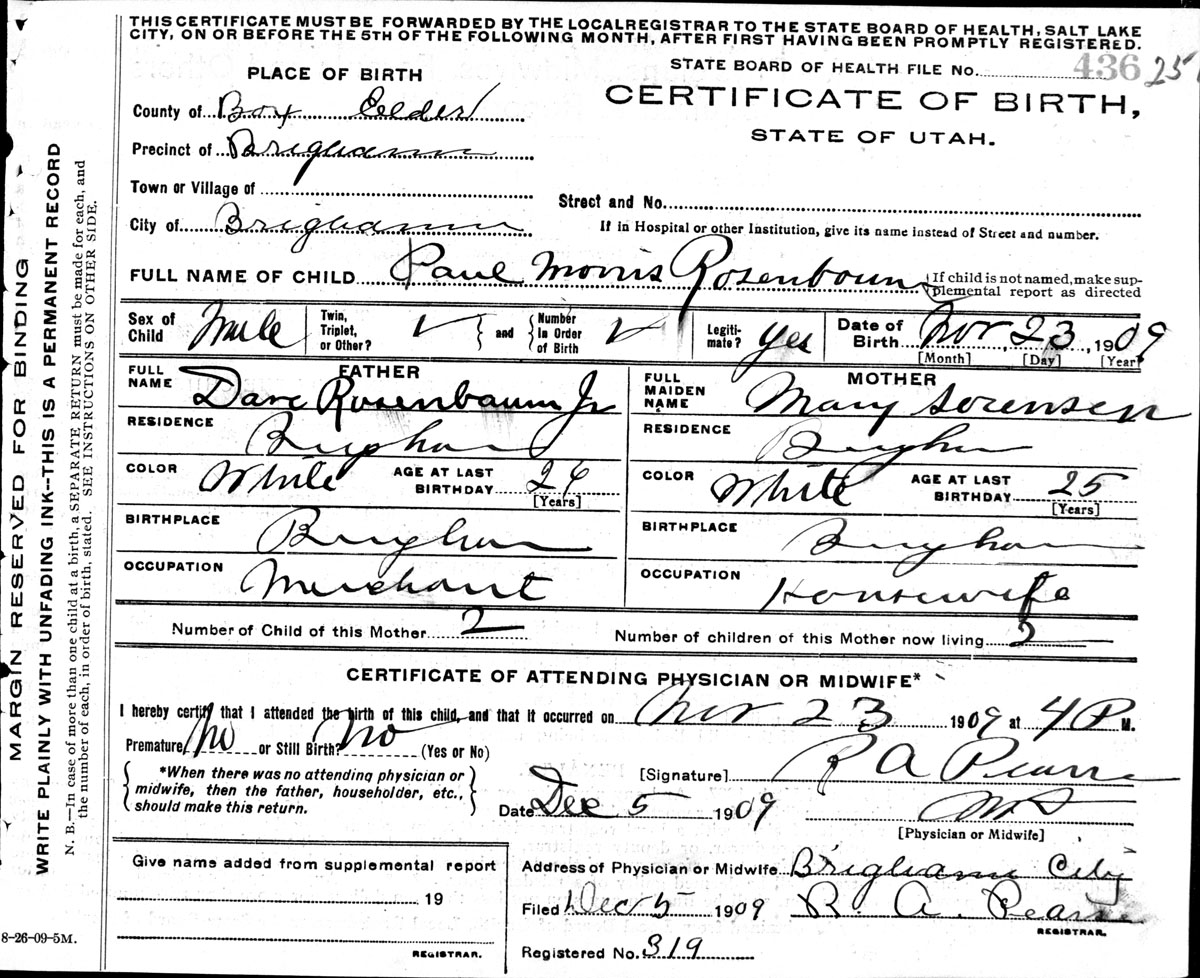 THIS CERTIFICATE MUST BE FORWARDED BY THE LOCALREGISTRAR TO THE STATE BOARD OF HEALTH, SALT LAKE
CITY, ON OR BEFORE THE 5TH OF THE FOLLOWING MONTH, AFTER FIRST HAVING BEEN PROMPTLY REGISTERED.
STATE BOARD OF HEALTH FILE No. 436 251
CERTIFICATE OF BIRTH,
STATE OF UTAH.
PLACE OF BIRTH
County of Box Elder
Precinct of Brigham
Town or Village of
Street and No.
City of Brigham
If in Hospital or other Institution, give its name instead of Street and number.
FULL NAME OF CHILD Paul Morris Rosenbaum { If child is not named, make sup-
plemental report as directed
Sex of Child Male
Twin, Triplet, or Other? ✓ } and { Number In Order of Birth ✓
Legiti-mate? yes
Date of Birth Nov 23, 1909
[Month] [Day] [Year]
FATHER
FULL NAME Dave Rosenbaum Jr
RESIDENCE Brigham
COLOR White AGE AT LAST BIRTHDAY 26
[Years]
BIRTHPLACE Brigham
OCCUPATION Merchant
MOTHER
FULL MAIDEN NAME Mary Sorensen
RESIDENCE Brigham
COLOR White AGE AT LAST BIRTHDAY 25
[Years]
BIRTHPLACE Brigham
OCCUPATION Housewife
Number of Child of this Mother 2
Number of children of this Mother now living 2
CERTIFICATE OF ATTENDING PHYSICIAN OR MIDWIFE*
I hereby certify that I attended the birth of this child, and that it occurred on Nov 23 1909 at 4 P M.
Premature No or Still Birth? No (Yes or No)
{ *When there was no attending physician or
midwife, then the father, householder, etc.,
should make this return. }
[Signature] R A Pearse
Date Dec 5 1909 M D
[Physician or Midwife]
Give name added from supplemental report
19
REGISTRAR.
Address of Physician or Midwife Brigham City
Filed Dec 5 1909 R. A. Pearse
REGISTRAR.
Registered No. 319
8-26-09-5M.
MARGIN RESERVED FOR BINDING
WRITE PLAINLY WITH UNFADING INK--THIS IS A PERMANENT RECORD
N. B.—In case of more than one child at a birth, a SEPARATE RETURN must be made for each, and
the number of each, in order of birth, stated. SEE INSTRUCTIONS ON OTHER SIDE.